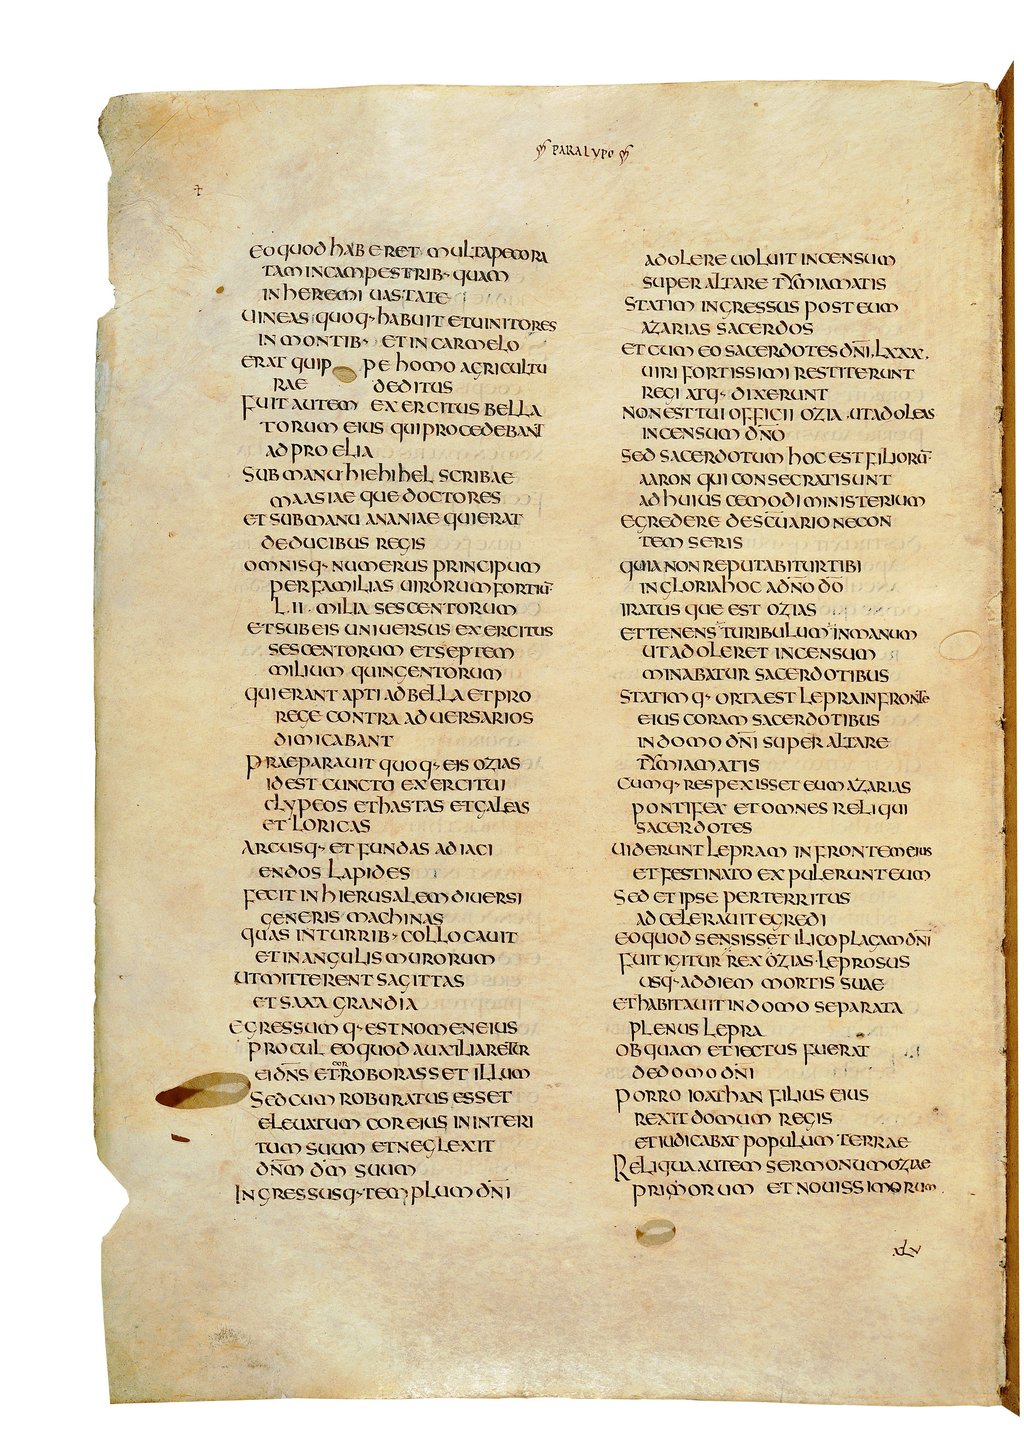 PARALYPO
EO QUOD HABERET MULTA PECORA
TAM IN CAMPESTRIB· QUAM
IN HEREMI UASTATE
UINEAS QUOQ· HABUIT ET UINITORES
IN MONTIB· ET IN CARMELO
ERAT QUIPPE HOMO AGRICULTU
RAE DEDITUS
FUIT AUTEM EXERCITUS BELLA
TORUM EIUS QUI PROCEDEBANT
AD PROELIA
SUB MANU HIEHIHEL SCRIBAE
MAASIAE QUE DOCTORES
ET SUB MANU ANANIAE QUI ERAT
DE DUCIBUS REGIS
OMNISQ· NUMERUS PRINCIPUM
PER FAMILIAS UIRORUM FORTIU̅
L·II· MILIA SESCENTORUM
ET SUB EIS UNIUERSUS EXERCITUS
SESCENTORUM ET SEPTEM
MILIUM QUINGENTORUM
QUI ERANT APTI AD BELLA ET PRO
REGE CONTRA ADUERSARIOS
DIMICABANT
PRAEPARAUIT QUOQ· EIS OZIAS
ID EST CUNCTO EXERCITUI
CLYPEOS ET HASTAS ET GALEAS
ET LORICAS
ARCUSQ· ET FUNDAS AD IACI
ENDOS LAPIDES
FECIT IN HIERUSALEM DIUERSI
GENERIS MACHINAS
QUAS IN TURRIB· COLLOCAUIT
ET IN ANGULIS MURORUM
UT MITTERENT SAGITTAS
ET SAXA GRANDIA
EGRESSUMQ· EST NOMEN EIUS
PROCUL EO QUOD AUXILIARETUR
EI DN̅S ET CONROBORASSET ILLUM
SED CUM ROBURATUS ESSET
ELEUATUM COR EIUS IN INTERI
TUM SUUM ET NEGLEXIT
DN̅M DM̅ SUUM
INGRESSUSQ· TEMPLUM DN̅I
ADOLERE UOLUIT INCENSUM
SUPER ALTARE TYMIAMATIS
STATIM INGRESSUS POST EUM
AZARIAS SACERDOS
ET CUM EO SACERDOTES DN̅I, LXXX,
UIRI FORTISSIMI RESTITERUNT
REGI ATQ· DIXERUNT
NON EST TUI OFFICII OZIA UT ADOLEAS
INCENSUM DN̅O
SED SACERDOTUM HOC EST FILIORU̅
AARON QUI CONSECRATI SUNT
AD HUIUSCEMODI MINISTERIUM
EGREDERE DE SC̅UARIO NE CON
TEMSERIS
QUIA NON REPUTABITUR TIBI
IN GLORIA HOC A DN̅O DO̅
IRATUSQUE EST OZIAS
ET TENENS TURIBULUM IN MANUM
UT ADOLERET INCENSUM
MINABATUR SACERDOTIBUS
STATIMQ· ORTA EST LEPRA IN FRONTE
EIUS CORAM SACERDOTIBUS
IN DOMO DN̅I SUPER ALTARE
TYMIAMATIS
CUMQ· RESPEXISSET EUM AZARIAS
PONTIFEX ET OMNES RELIQUI
SACERDOTES
UIDERUNT LEPRAM IN FRONTEM EIUS
ET FESTINATO EXPULERUNT EUM
SED ET IPSE PERTERRITUS
ADCELERAUIT EGREDI
EO QUOD SENSISSET ILICO PLAGAM DN̅I
FUIT IGITUR REX OZIAS LEPROSUS
USQ· AD DIEM MORTIS SUAE
ET HABITAUIT IN DOMO SEPARATA
PLENUS LEPRA
OB QUAM ET IECTUS FUERAT
DE DOMO DN̅I
PORRO IOATHAN FILIUS EIUS
REXIT DOMUM REGIS
ET IUDICABAT POPULUM TERRAE
RELIQUA AUTEM SERMONUM OZIAE
PRIMORUM ET NOUISSIMORUM